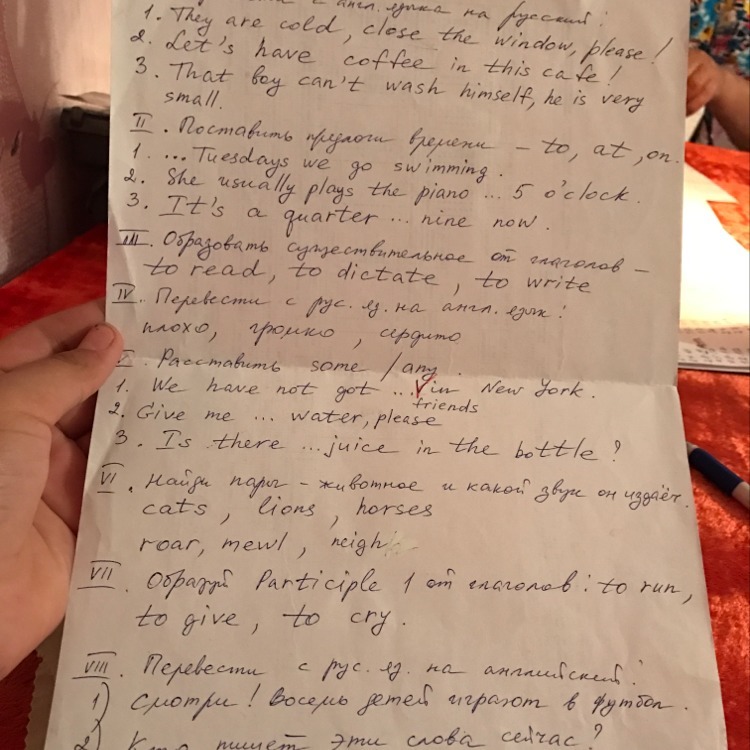 с англ. языка на русский:
1. They are cold, close the window, please!
2. Let's have coffee in this cafe!
3. That boy can't wash himself, he is very
small.
II. Поставить предлоги времени – to, at, on.
1. ... Tuesdays we go swimming.
2. She usually plays the piano ... 5 o'clock.
3. It's a quarter ... nine now.
III. Образовать существительное от глаголов –
to read, to dictate, to write
IV. Перевести с рус. яз. на англ. язык:
плохо, громко, сердито
V. Расставить some / any.
1. We have not got ... √ in New York.
friends
2. Give me ... water, please
3. Is there ... juice in the bottle?
VI. Найди пары – животное и какой звук он издаёт.
cats, lions, horses
roar, mewl, neigh
VII. Образуй Participle 1 от глаголов: to run,
to give, to cry.
VIII. Перевести с рус. яз. на английский:
1) Смотри! Восемь детей играют в футбол.
2) Кто пишет эти слова сейчас?